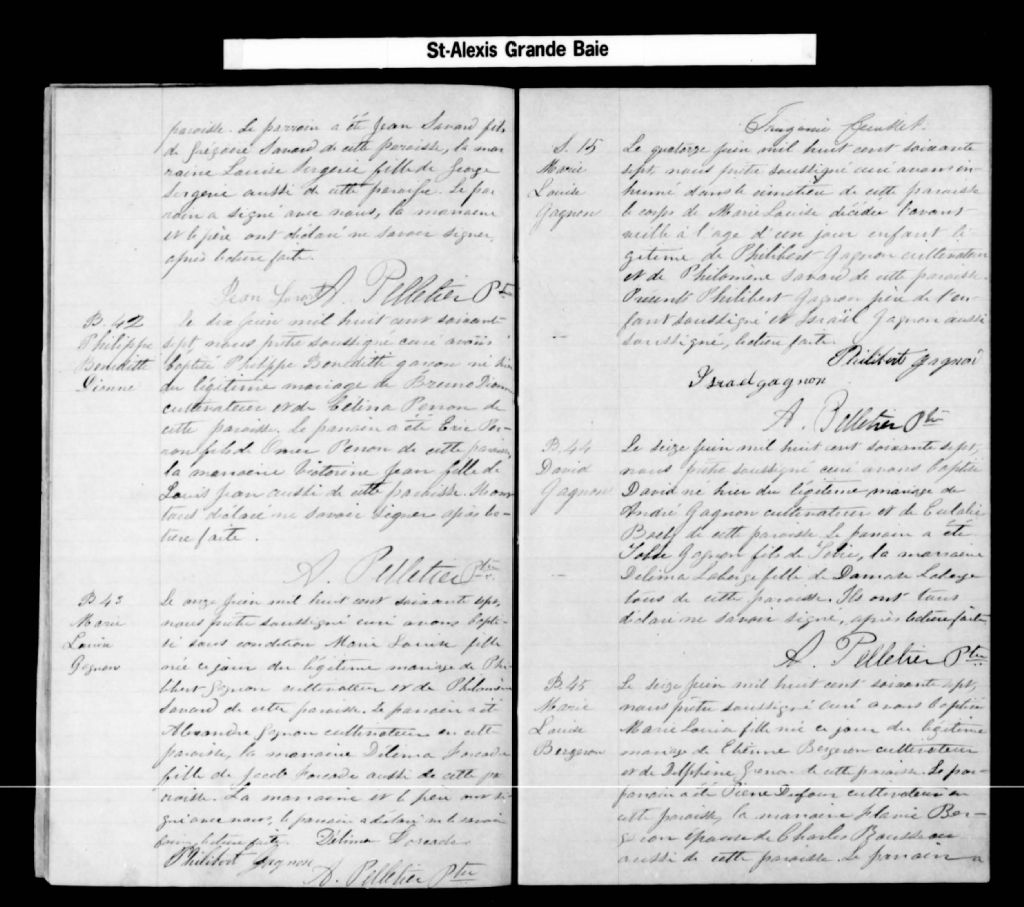 St-Alexis Grande Baie
paroisse. Le parrain a été Jean Savard fils
de Grégoire Savard de cette paroisse, la mar
raine Louise Sergerie fille de George
Sergerie aussi de cette paroisse. Le par
rain a signé avec nous, la marraine
et le père ont déclaré ne savoir signer,
après lecture faite.
Jean Savard A. Pelletier Ptre
B. 42
Philippe
Benditte
Dionne
Le dix juin mil huit cent soixante
sept nous prêtre soussigné curé avons
baptisé Philippe Benditte garçon né hier
du légitime mariage de Bruno Dionne
cultivateur et de Célina Perron de
cette paroisse. Le parrain a été Eric Per-
ron fils de Omer Perron de cette paroisse,
la marraine Victorine Jean fille de
Louis Jean aussi de cette paroisse.
tous déclaré ne savoir signer après lec-
ture faite.
A. Pelletier Ptre
B 43
Marie
Louise
Gagnon
Le onze juin mil huit cent soixante sept,
nous prêtre soussigné curé avons bapti-
sé sous condition Marie Louise fille
née ce jour du légitime mariage de Phi
libert Gagnon cultivateur et de Philomène
Savard de cette paroisse. Le parrain a été
Alexandre Gagnon cultivateur en cette
paroisse, la marraine Délima Forcade
fille de Jacob Forcade aussi de cette pa
roisse. La marraine et le père ont si-
gné avec nous, le parrain a déclaré ne le savoir
faire, lecture faite. Délima Forcade
Philibert Gagnon
A. Pelletier Ptre
S. 15
Marie
Louise
Gagnon
Le quatorze juin mil huit cent soixante
sept, nous prêtre soussigné curé avons in-
humé dans le cimetière de cette paroisse
le corps de Marie Louise décédée l'avant
veille à l'age d'un jour enfant lé
gitime de Philibert Gagnon cultivateur
et de Philomène Savard de cette paroisse.
Présents Philibert Gagnon père de l'en-
fant soussigné et Israël Gagnon aussi
soussigné, lecture faite.
Philibert gagnon
Israel gagnon
A. Pelletier Ptre
B. 44
David
Gagnon
Le seize juin mil huit cent soixante sept,
nous prêtre soussigné curé avons baptisé
David né hier du légitime mariage de
André Gagnon cultivateur et de Eulalie
de cette paroisse. Le parrain a été
Gagnon fils de, la marraine
Délima Laberge fille de Damase Laberge
tous de cette paroisse. Ils ont tous
déclaré ne savoir signé, après lecture faite
A. Pelletier Ptre
B. 45
Marie
Louise
Bergeron
Le seize juin mil huit cent soixante sept,
nous prêtre soussigné curé avons baptisé
Marie Louise fille née ce jour du légitime
mariage de Etienne Bergeron cultivateur
et de Delphine Grenon de cette paroisse. Le par-
parrain a été Pierre Dufour cultivateur en
cette paroisse, la marraine Ber-
geron épouse de Charles
aussi de cette paroisse. Le parrain a